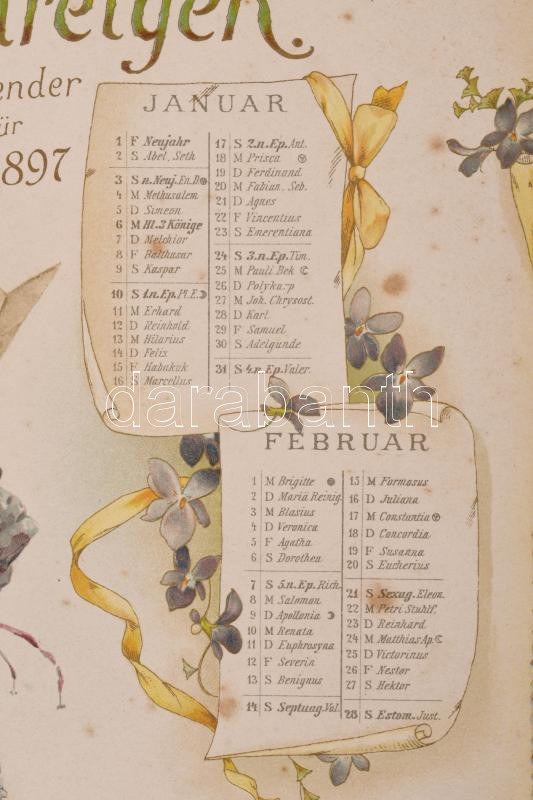 ender
ür
897
JANUAR
1 F Neujahr
2 S Abel, Seth
3 S n. Neuj. En. D.
4 M Methusalem
5 D Simeon
6 M Hl. 3 Könige
7 D Melchior
8 F Balthasar
9 S Kaspar
10 S 1. n. Ep. Pl. E.
11 M Erhard
12 D Reinhold
13 M Hilarius
14 D Felix
15 F Habakuk
16 S Marcellus
17 S 2. n. Ep. Ant.
18 M Prisca
19 D Ferdinand
20 M Fabian, Seb.
21 D Agnes
22 F Vincentius
23 S Emerentiana
24 S 3. n. Ep. Tim.
25 M Pauli Bek
26 D Polykarp
27 M Joh. Chrysost.
28 D Karl
29 F Samuel
30 S Adelgunde
31 S 4. n. Ep. Valer.
darabanth
FEBRUAR
1 M Brigitte
2 D Mariä Reinig.
3 M Blasius
4 D Veronica
5 F Agatha
6 S Dorothea
7 S 5. n. Ep. Rich.
8 M Salomon
9 D Apollonia
10 M Renata
11 D Euphrosyna
12 F Severin
13 S Benignus
14 S Septuag. Val.
15 M Formosus
16 D Juliana
17 M Constantia
18 D Concordia
19 F Susanna
20 S Eucherius
21 S Sexag. Eleon.
22 M Petri Stuhlf.
23 D Reinhard
24 M Matthias Ap.
25 D Victorinus
26 F Nestor
27 S Hektor
28 S Estom. Just.